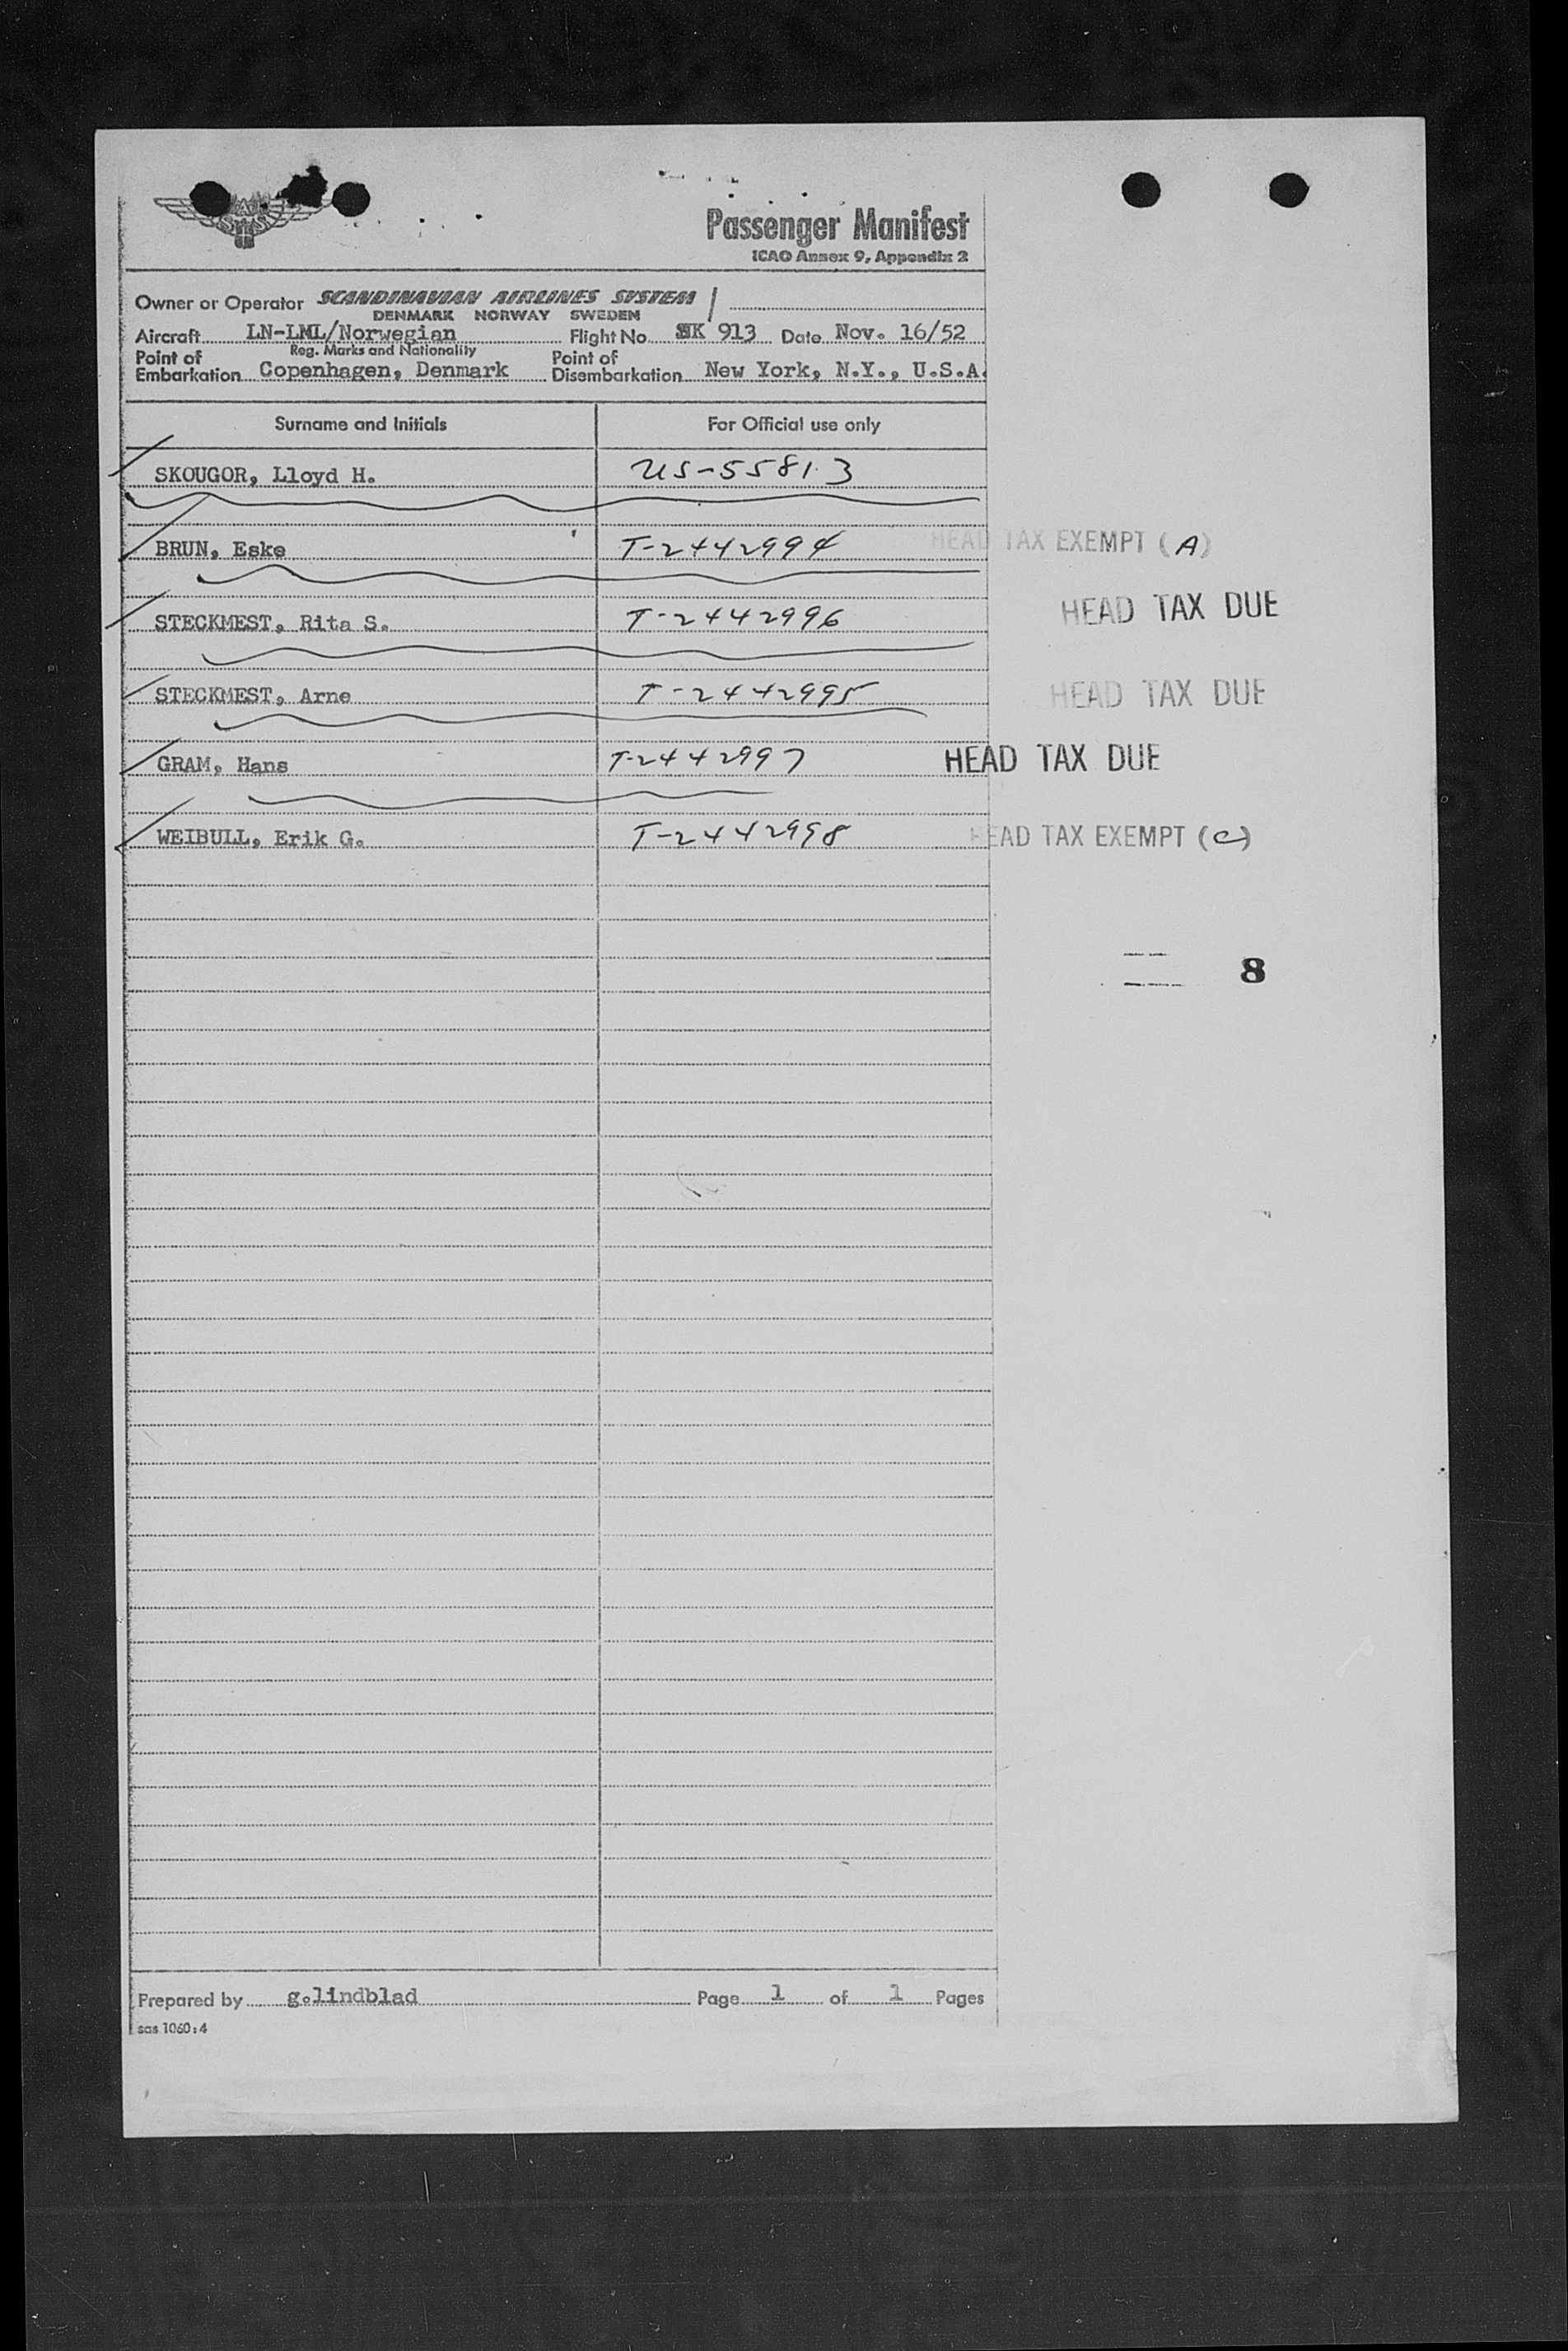 SAS
Passenger Manifest
ICAO Annex 9, Appendix 2
Owner or Operator SCANDINAVIAN AIRLINES SYSTEM /
DENMARK NORWAY SWEDEN
Aircraft LN-LML/Norwegian Flight No SK 913 Date Nov. 16/52
Reg. Marks and Nationality
Point of Embarkation Copenhagen, Denmark Point of Disembarkation New York, N.Y., U.S.A.
Surname and Initials For Official use only
SKOUGOR, Lloyd H. US-55813
BRUN, Eske T-2442994 HEAD TAX EXEMPT (A)
STECKMEST, Rita S. T-2442996 HEAD TAX DUE
STECKMEST, Arne T-2442995 HEAD TAX DUE
GRAM, Hans T-2442997 HEAD TAX DUE
WEIBULL, Erik G. T-2442998 HEAD TAX EXEMPT (C)
8
Prepared by g.lindblad Page 1 of 1 Pages
sas 1060:4